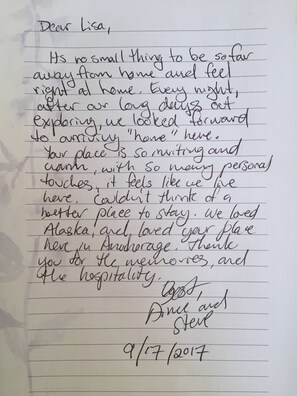 Dear Lisa,
It's no small thing to be so far
away from home and feel
right at home. Every night,
after our long days out
exploring, we looked forward
to arriving "home" here.
Your place is so inviting and
warm, with so many personal
touches, it feels like we live
here. Couldn't think of a
better place to stay. We loved
Alaska, and loved your place
here in Anchorage. Thank
you for the memories, and
the hospitality.
and
Steve
9/17/2017